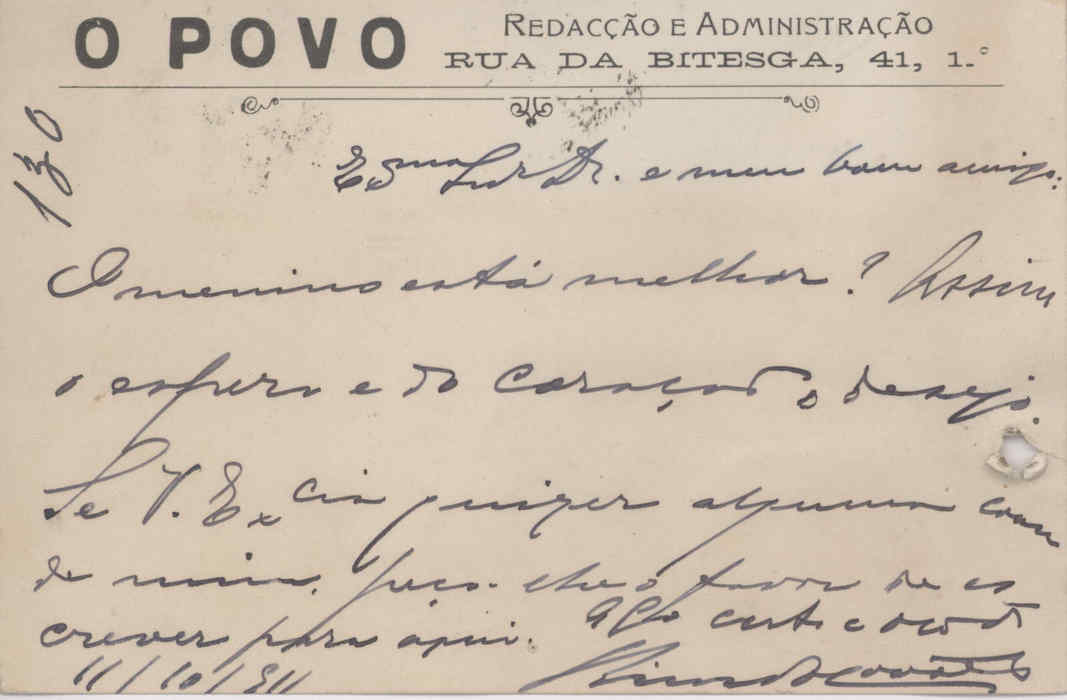 O POVO
REDACÇÃO E ADMINISTRAÇÃO
RUA DA BITESGA, 41, 1.º
130
Exmo Snr Dr. e meu bom amigo:
O menino está melhor? Assim
o espero e do coração o desejo.
Se V. Excia quizer alguma cousa
de mim, peço-lhe o favor de es
crever para aqui.
certo e
11/10/911